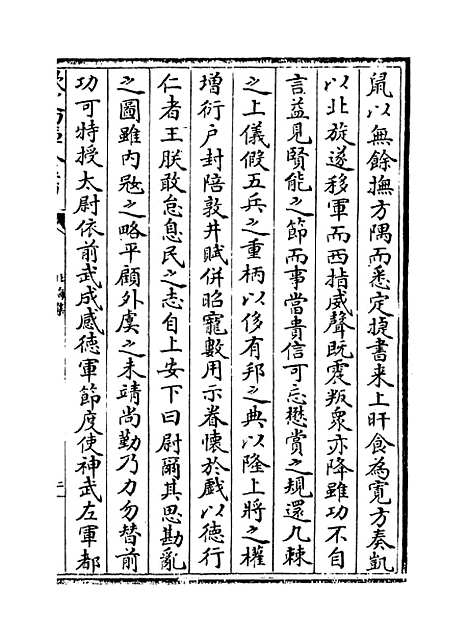 鼠以無餘撫方隅而悉定捷書来上旰食為寛方奏凱
以北旋遂移軍而西指威聲既震叛衆亦降雖功不自
言益見賢能之節而事當貴信可忘懋賞之規還几棘
之上儀假五兵之重柄以侈有邦之典以隆上將之權
增衍户封陪敦井賦併昭寵數用示眷懷於戲以德行
仁者王朕敢怠息民之志自上安下曰尉爾其思勘亂
之圖雖内冦之略平顧外虞之未靖尚勤乃力勿替前
功可特授太尉依前武成感徳軍節度使神武左軍都